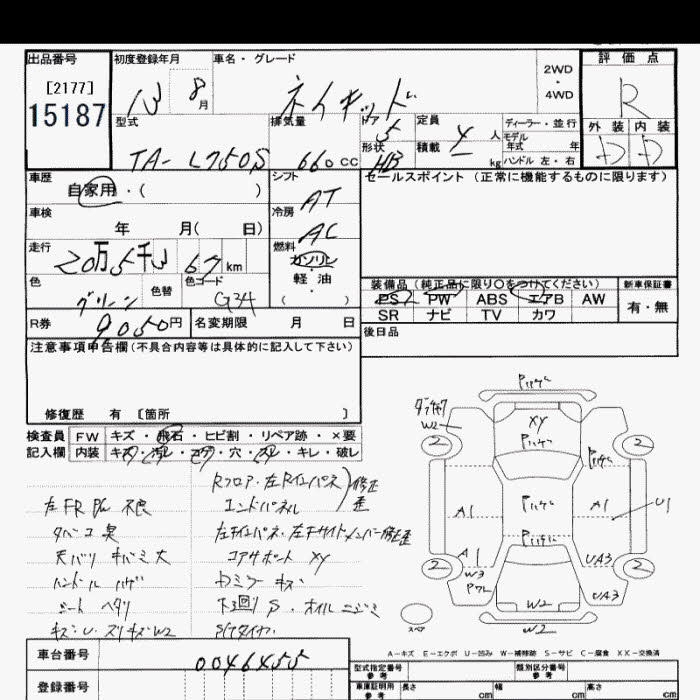 出品番号
[2177]
15187
初度登録年月
13 8月
車名・グレード
ネイキッド
2WD
・
4WD
評価点
R
外装 内装
D D
型式
TA-L750S
排気量
660cc
ドア
5
形状
HB
定員
4人
積載
kg
ディーラー・並行
モデル
年式 年
ハンドル 左・右
車歴
自家用・( )
シフト
AT
セールスポイント (正常に機能するものに限ります)
車検
年 月( 日)
冷房
AC
走行
20万5千167km
燃料
ガソリン
・
軽油
( )
色
グリーン
色替
色コード
G34
装備品(純正品に限り○をつけてください)
PS PW ABS エアB AW
SR ナビ TV カワ
新車保証書
有・無
R券
9,050円
名変期限 月 日
後日品
注意事項申告欄(不具合内容等は具体的に記入して下さい)
修復歴 有 [箇所 ]
検査員
記入欄
FW キズ・飛石・ヒビ割・リペア跡・×要
内装 キズ・汚レ・コゲ・穴・スレ・キレ・破レ
左FR P/w 不良
タバコ臭
天バリ キバミ大
ハンドル ハゲ
シート ヘタリ
キズ・U・スリキズW2
Rフロア・左Rインパネ
エンドパネル
修正
歪
左Fインパネ・左Fサイドメンバー修正歪
コアサポート XY
カミツキズ
下回りS・オイルニジミ
S/Tタイヤ
W2
2
XY
2
A1
A1
U1
A1
W3
UA3
2
2
W2
UA3
W2
スペア
A-キズ E-エクボ U-凹み W-補修跡 S-サビ C-腐食 XX-交換済
車台番号
0046455
登録番号
型式指定番号
参考
類別区分番号
参考
車庫証明用
参考
長さ cm
幅 cm
高さ cm